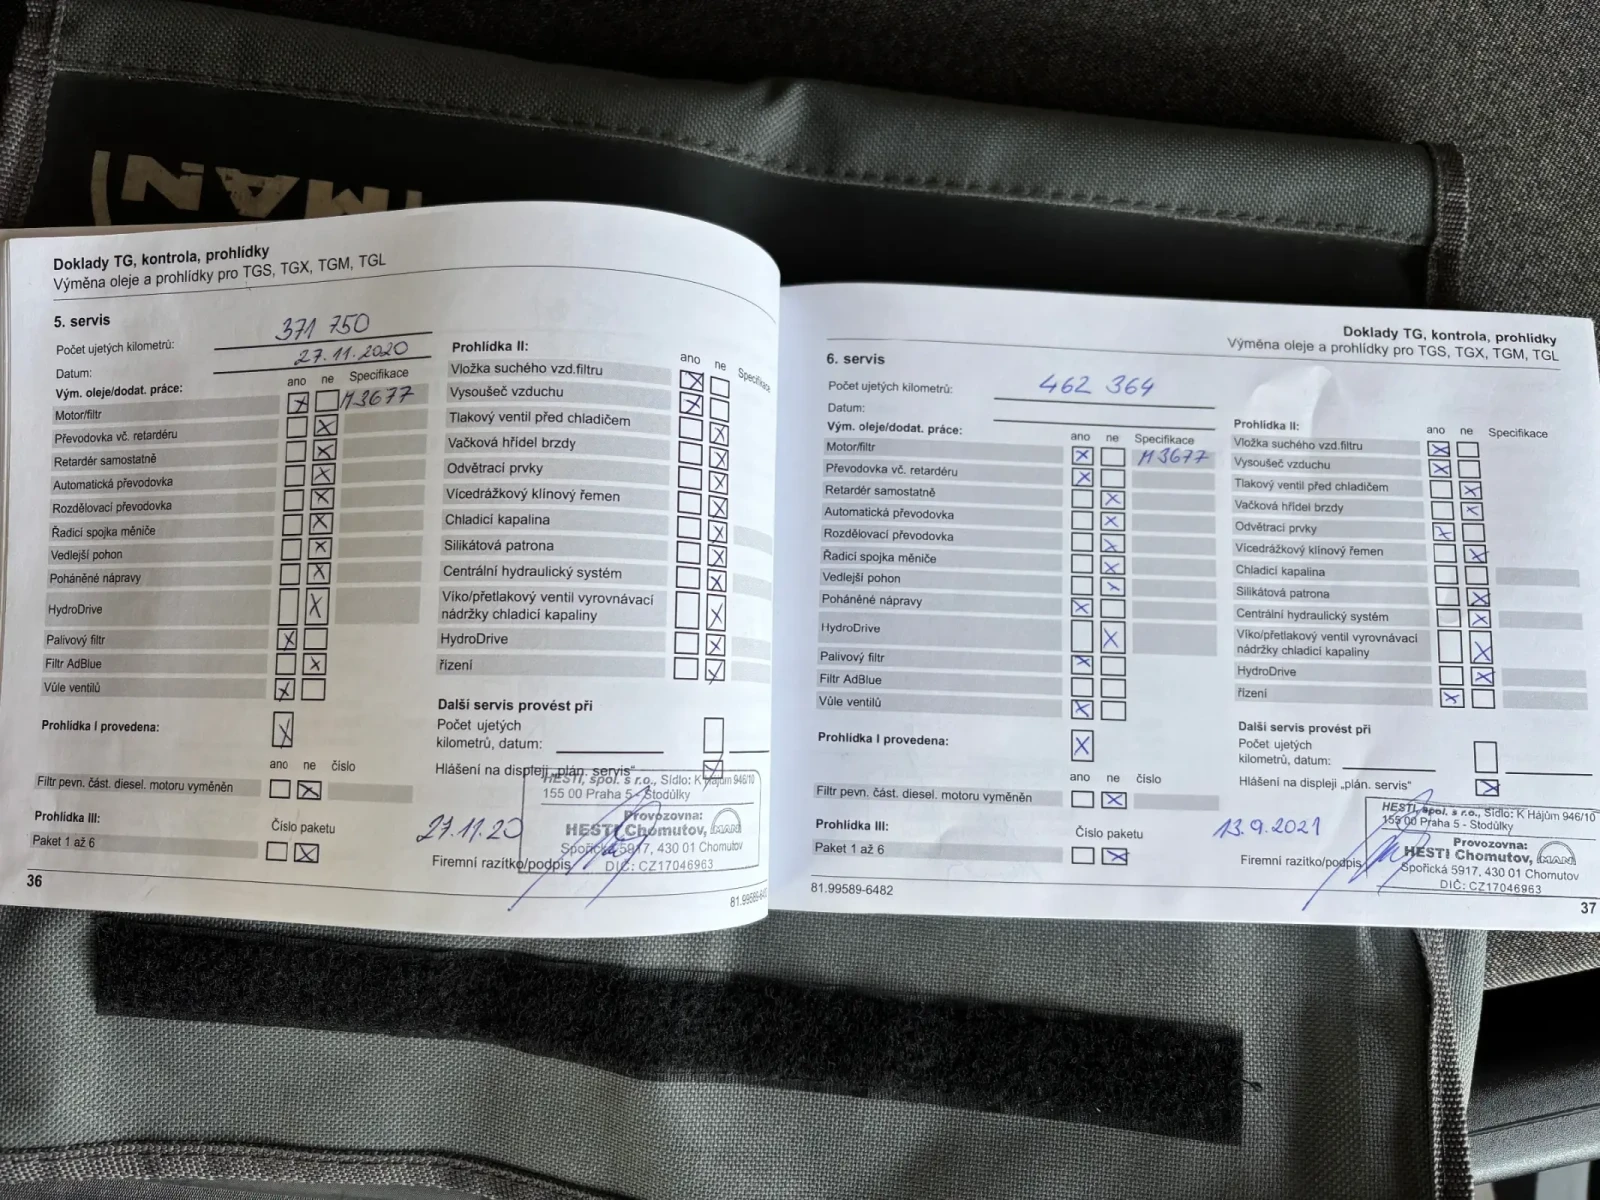 MAN
Doklady TG, kontrola, prohlídky
Výměna oleje a prohlídky pro TGS, TGX, TGM, TGL
5. servis
Počet ujetých kilometrů: 371 750
Datum: 27.11.2020
Vým. oleje/dodat. práce: ano ne Specifikace
Motor/filtr X M3677
Převodovka vč. retardéru X
Retardér samostatně X
Automatická převodovka X
Rozdělovací převodovka X
Řadicí spojka měniče X
Vedlejší pohon X
Poháněné nápravy X
HydroDrive X
Palivový filtr X
Filtr AdBlue X
Vůle ventilů X
Prohlídka I provedena: X
ano ne číslo
Filtr pevn. část. diesel. motoru vyměněn X
Prohlídka III: Číslo paketu
Paket 1 až 6 X
36
Prohlídka II: ano ne Specifikace
Vložka suchého vzd.filtru X
Vysoušeč vzduchu X
Tlakový ventil před chladičem X
Vačková hřídel brzdy X
Odvětrací prvky X
Vícedrážkový klínový řemen X
Chladicí kapalina X
Silikátová patrona X
Centrální hydraulický systém X
Víko/přetlakový ventil vyrovnávací
nádržky chladicí kapaliny X
HydroDrive X
řízení X
Další servis provést při
Počet ujetých
kilometrů, datum:
Hlášení na displeji „plán. servis“ X
HESTI, spol. s r.o., Sídlo: K Hájům 946/10
155 00 Praha 5 - Stodůlky
Provozovna:
HESTI Chomutov, MAN
Spořická 5917, 430 01 Chomutov
DIČ: CZ17046963
27.11.20
Firemní razítko/podpis
81.99589-6482
Doklady TG, kontrola, prohlídky
Výměna oleje a prohlídky pro TGS, TGX, TGM, TGL
6. servis
Počet ujetých kilometrů: 462 364
Datum:
Vým. oleje/dodat. práce: ano ne Specifikace
Motor/filtr X M3677
Převodovka vč. retardéru X
Retardér samostatně X
Automatická převodovka X
Rozdělovací převodovka X
Řadicí spojka měniče X
Vedlejší pohon X
Poháněné nápravy X
HydroDrive X
Palivový filtr X
Filtr AdBlue
Vůle ventilů X
Prohlídka I provedena: X
ano ne číslo
Filtr pevn. část. diesel. motoru vyměněn X
Prohlídka III: Číslo paketu
Paket 1 až 6 X
81.99589-6482
Prohlídka II: ano ne Specifikace
Vložka suchého vzd.filtru X
Vysoušeč vzduchu X
Tlakový ventil před chladičem X
Vačková hřídel brzdy X
Odvětrací prvky X
Vícedrážkový klínový řemen X
Chladicí kapalina
Silikátová patrona X
Centrální hydraulický systém X
Víko/přetlakový ventil vyrovnávací
nádržky chladicí kapaliny X
HydroDrive X
řízení X
Další servis provést při
Počet ujetých
kilometrů, datum:
Hlášení na displeji „plán. servis“ X
HESTI, spol. s r.o., Sídlo: K Hájům 946/10
155 00 Praha 5 - Stodůlky
Provozovna:
HESTI Chomutov, MAN
Spořická 5917, 430 01 Chomutov
DIČ: CZ17046963
13.9.2021
Firemní razítko/podpis
37